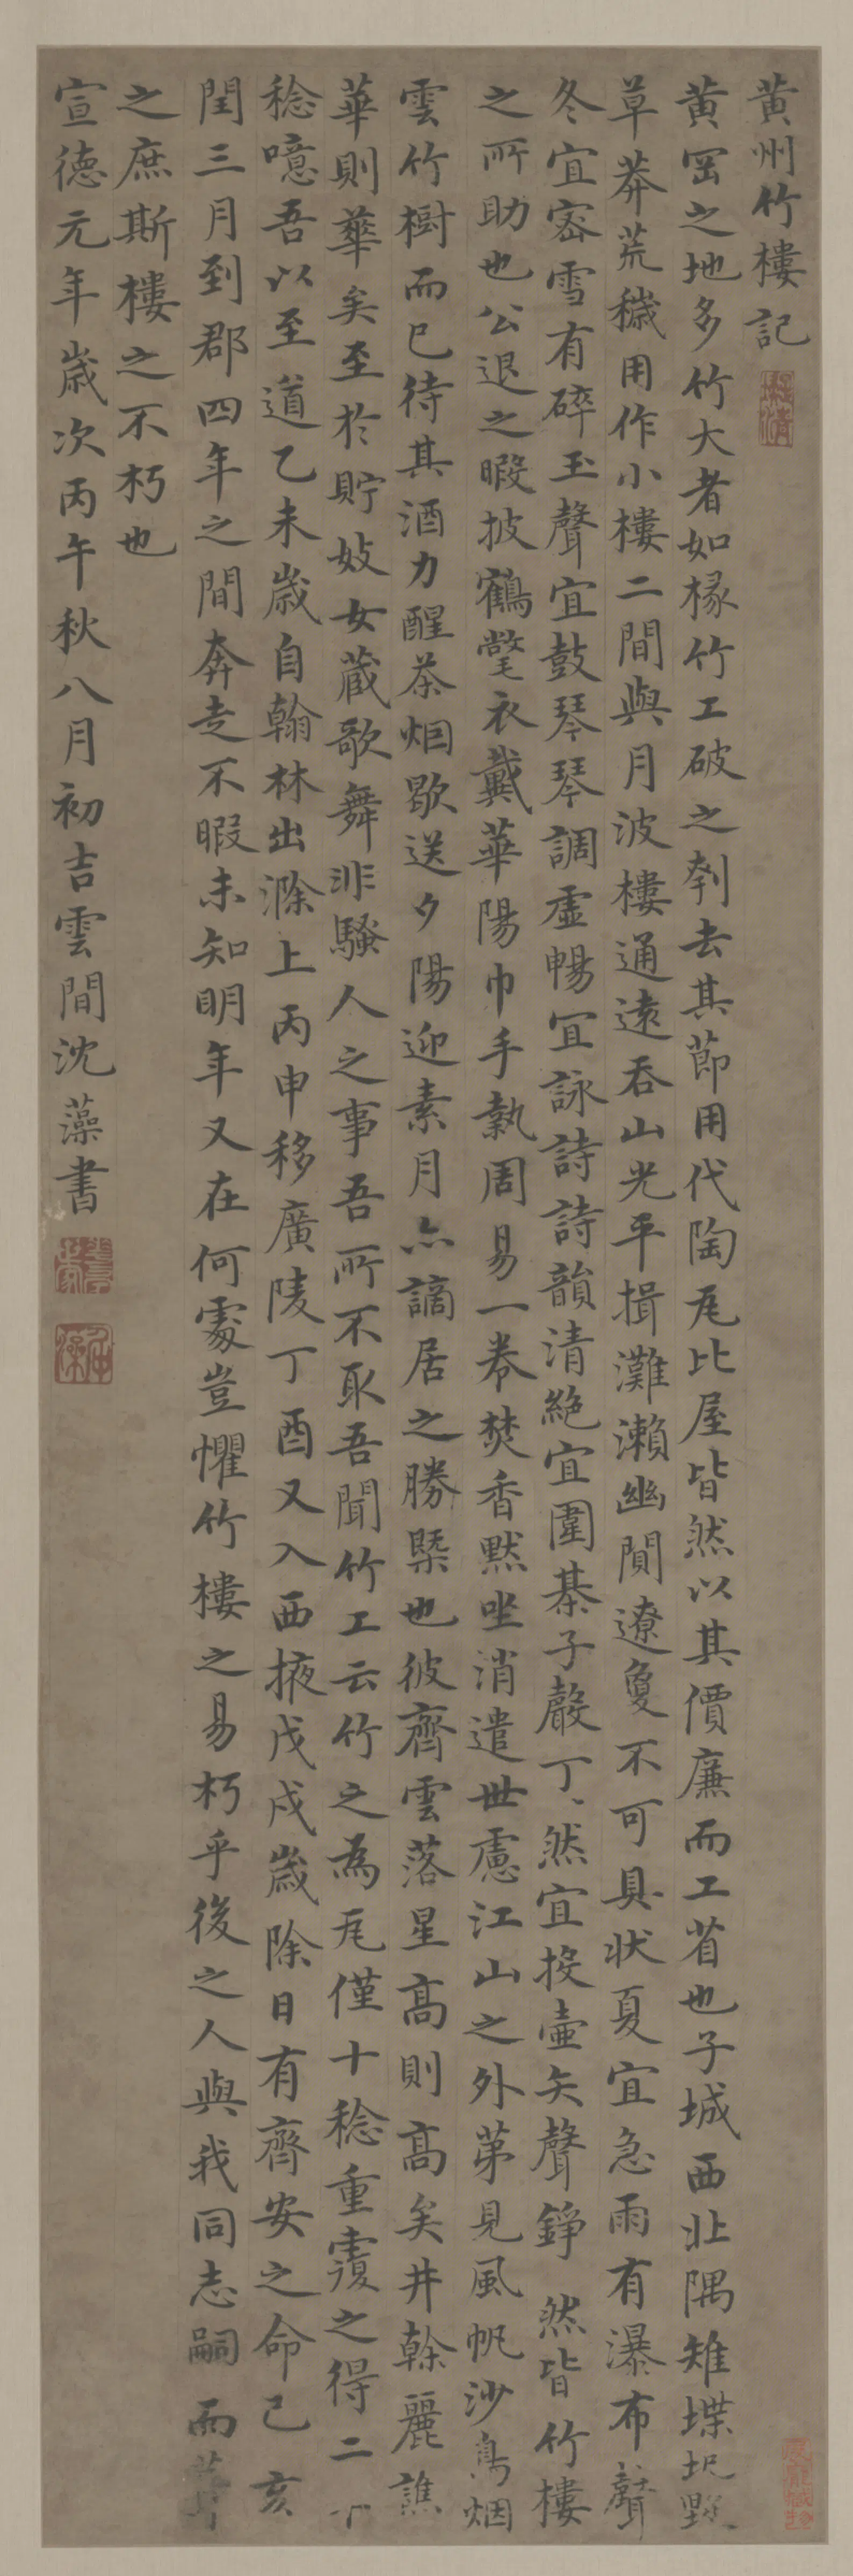 黄州竹樓記
黄岡之地多竹大者如椽竹工破之刳去其節用代陶瓦比屋皆然以其價廉而工省也子城西北隅雉堞圮毀
草莽荒穢用作小樓二間與月波樓通遠吞山光平揖灘瀨幽閴遼夐不可具狀夏宜急雨有瀑布聲
冬宜密雪有碎玉聲宜鼓琴琴調虛暢宜詠詩詩韻清絶宜圍棊子聲丁丶然宜投壷矢聲錚然皆竹樓
之所助也公退之暇披鶴氅衣戴華陽巾手執周易一卷焚香默坐消遣世慮江山之外苐見風帆沙鳥烟
雲竹樹而已待其酒力醒茶烟歇送夕陽迎素月亦謫居之勝槩也彼齊雲落星髙則髙矣井榦麗譙
華則華矣至於貯妓女藏歌舞非騷人之事吾所不取吾聞竹工云竹之為瓦僅十稔重覆之得二十
稔噫吾以至道乙未歲自翰林出滁上丙申移廣陵丁酉又入西掖戊戌歲除日有齊安之命己亥
閏三月到郡四年之間奔走不暇未知明年又在何處豈懼竹樓之易朽乎後之人與我同志嗣而葺
之庶斯樓之不朽也
宣德元年歲次丙午秋八月初吉雲間沈藻書